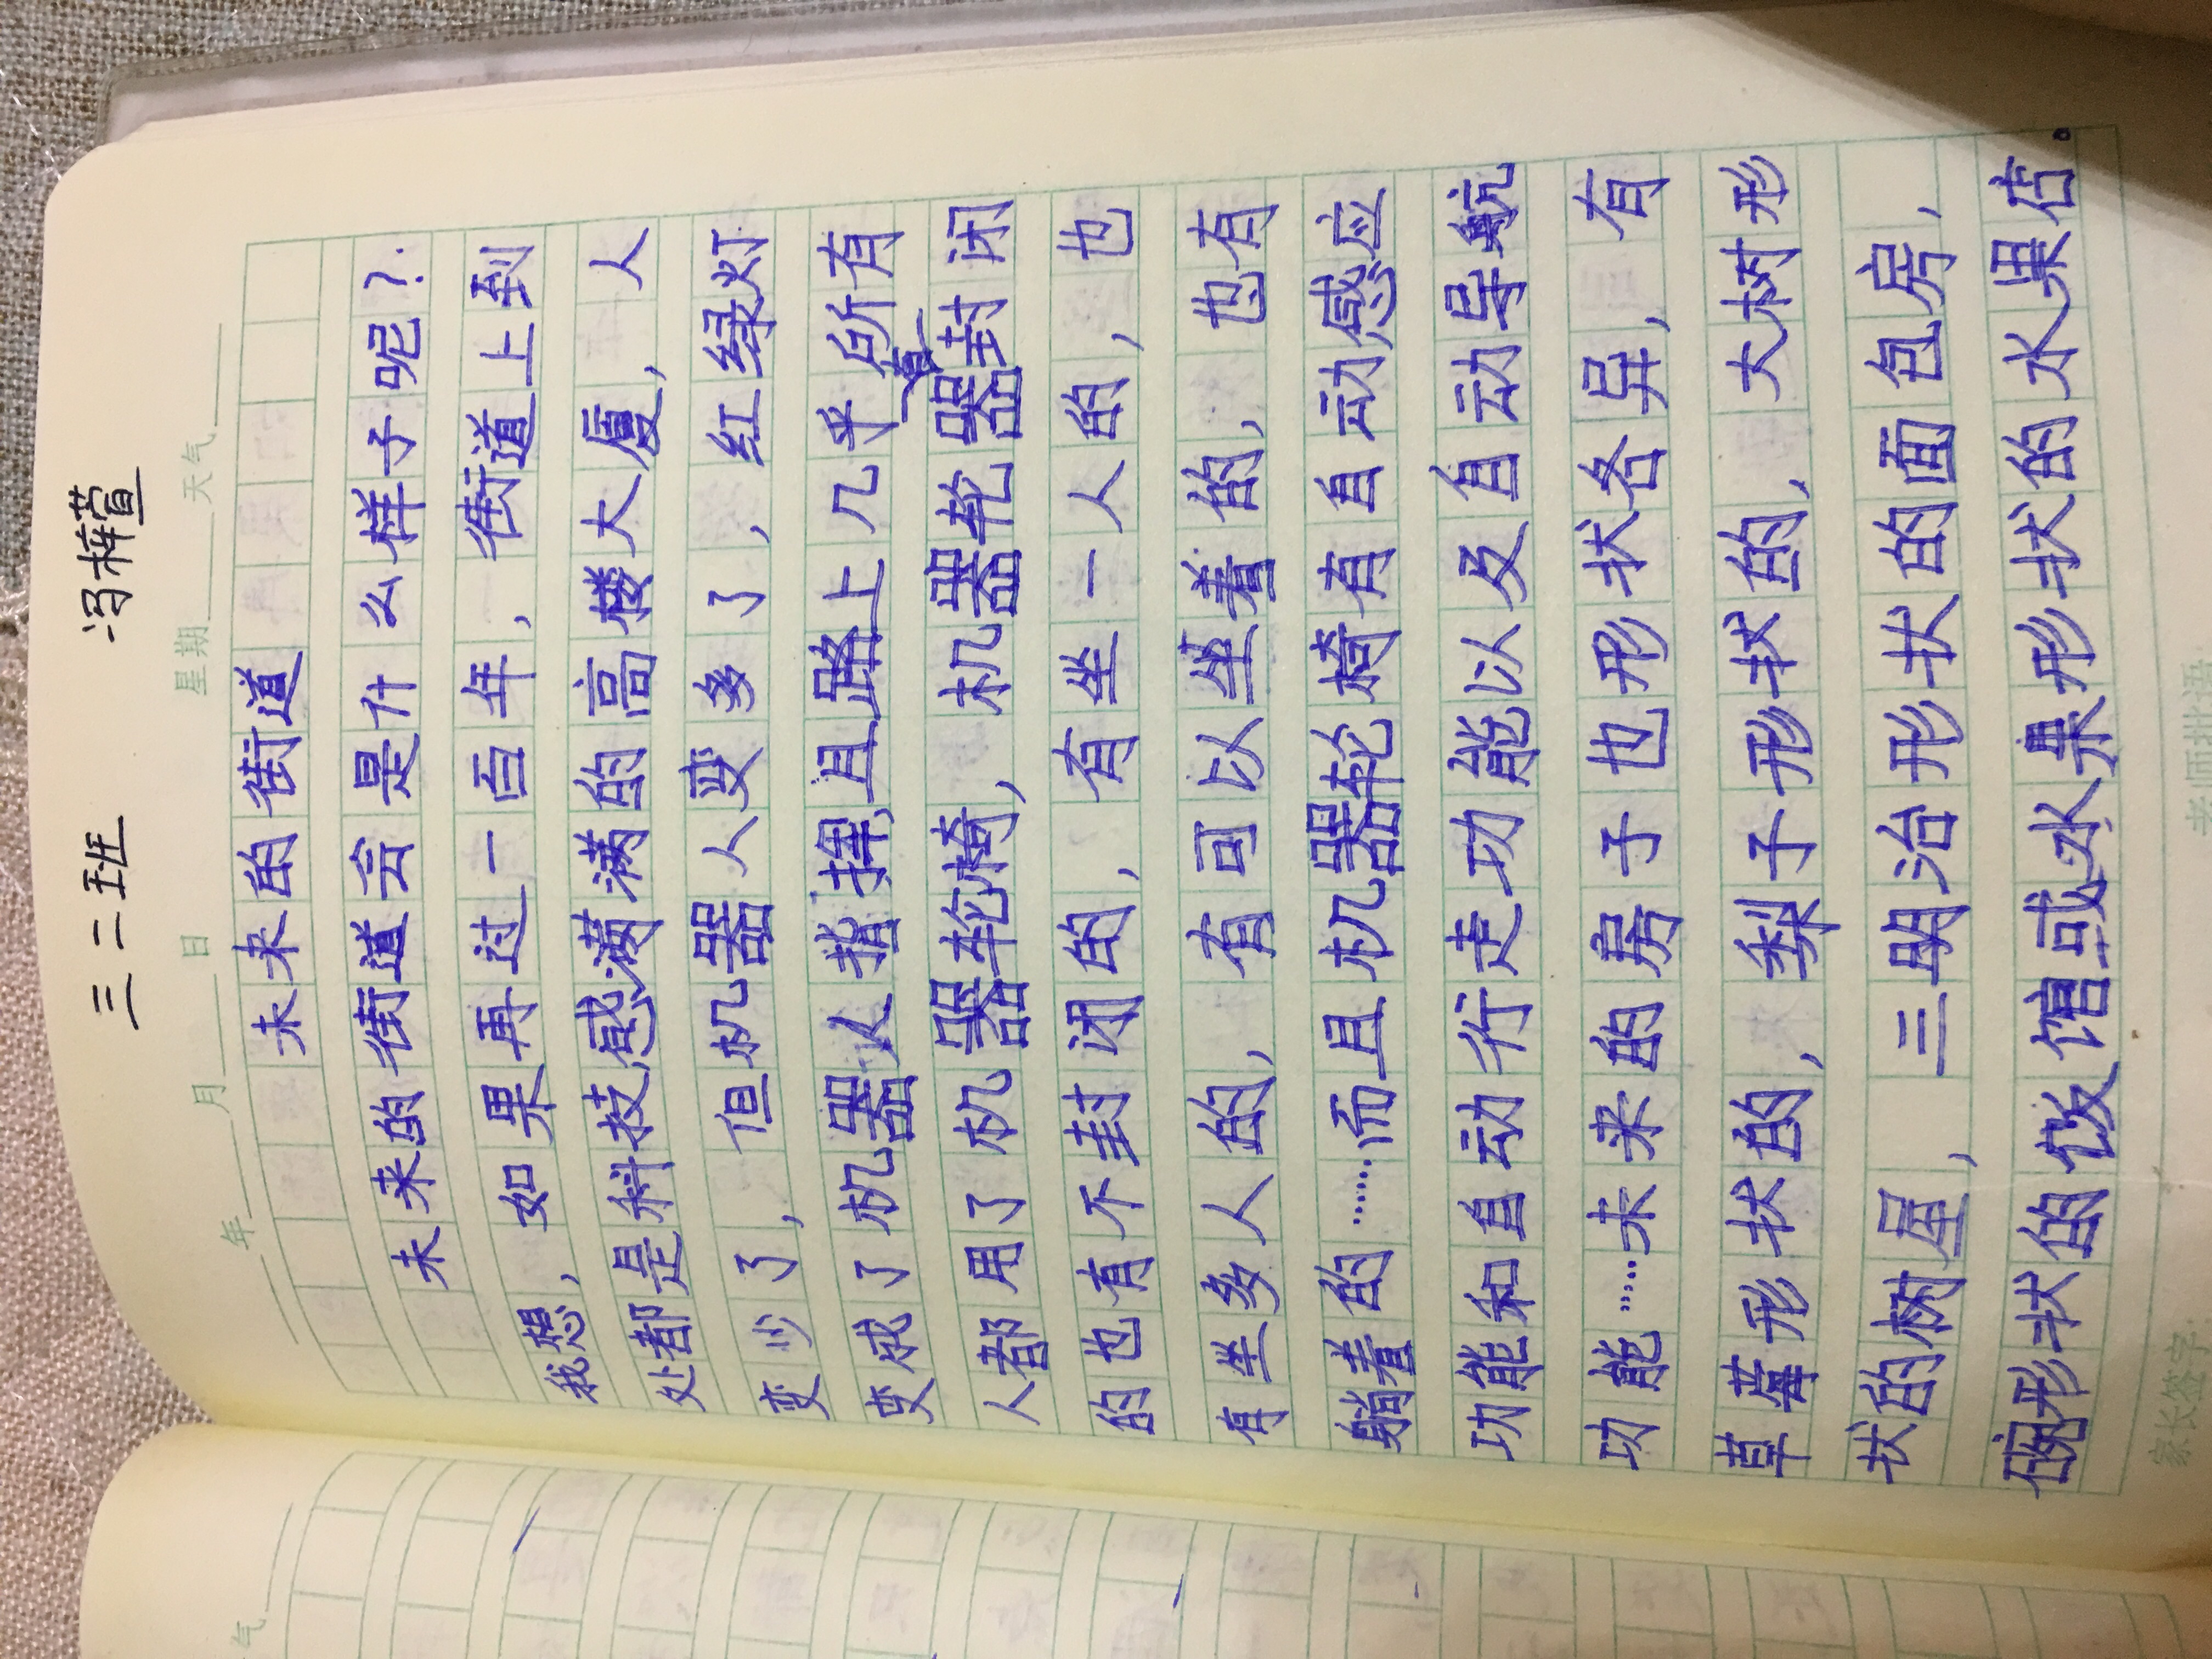 三二班 冯梓萱
年 月 日 星期 天气
未来的街道
未来的街道会是什么样子呢?
我想,如果再过一百年,街道上到
处都是科技感满满的高楼大厦,人
变少了,但机器人变多了,红绿灯
变成了机器人指挥,且路上几乎所有
人都用了机器轮椅,机器轮器有封闭
的也有不封闭的,有坐一人的,也
有坐多人的,有可以坐着的,也有
躺着的……而且机器轮椅有自动感应
功能和自动行走功能以及自动导航
功能……未来的房子也形状各异,有
草莓形状的,梨子形状的,大树形
状的树屋,三明治形状的面包房,
碗形状的饭馆或水果形状的水果店。
老师批语:
家长签字:
气